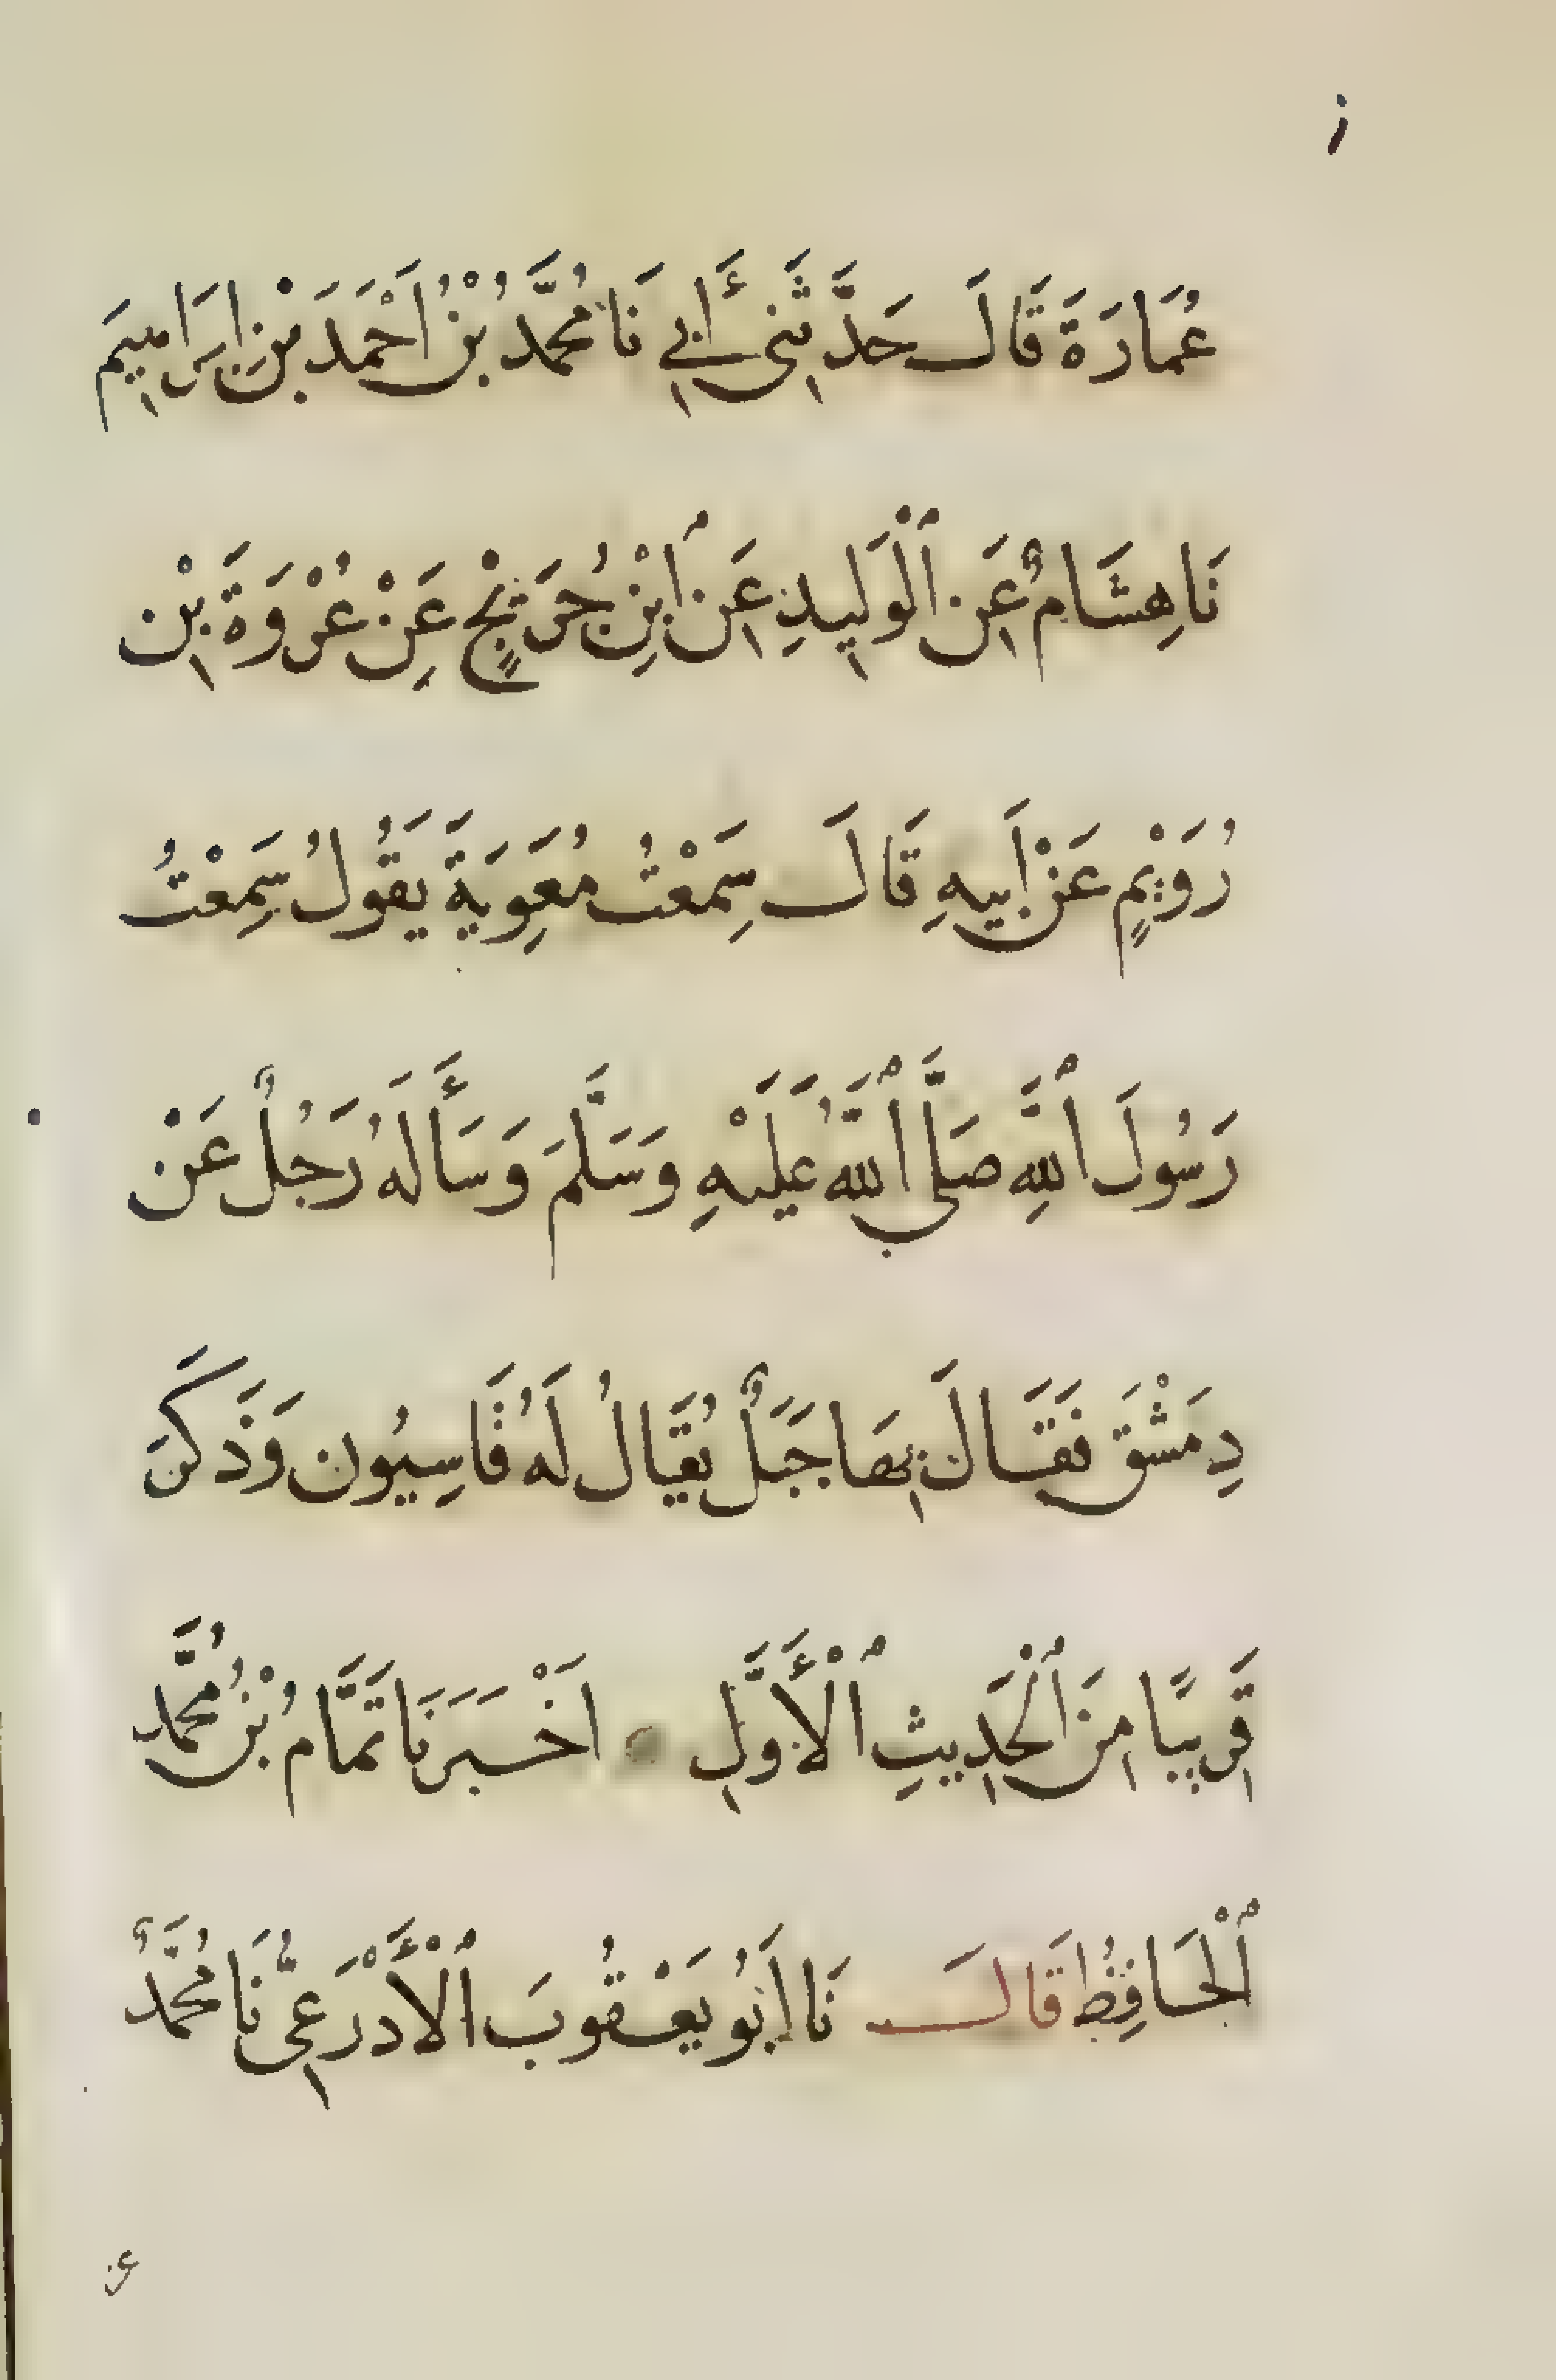 عُمَارَةَ قَالَ حَدَّثَنِي أَبِي نَا مُحَمَّدُ بْنُ أَحْمَدَ بْنِ إِبرَاهِيمَ
نَا هِشَامٌ عَنِ ٱلْوَلِيدِ عَنِ ٱبْنِ جُرَيْجٍ عَنْ عُرْوَةَ بْنِ
رُوَيْمٍ عَنْ أَبِيهِ قَالَ سَمِعْتُ مُعَوِيَةَ يَقُولُ سَمِعْتُ
رَسُولَ ٱللَّهِ صَلَّى ٱللَّهُ عَلَيْهِ وَسَلَّمَ وَسَأَلَهُ رَجُلٌ عَنْ
دِمَشْقَ فَقَالَ بِهَا جَبَلٌ يُقَالُ لَهُ قَاسِيُون وَذَكَرَ
قَرِيبًا مِنَ ٱلْحَدِيثِ ٱلْأَوَّلِ اَخْبَرَنَا تَمَّامُ بْنُ مُحَمَّد
ٱلْحَافِظُ قَالَ نَا اَبُو يَعْقُوبَ ٱلْأَدْرَعِيُّ نَا مُحَمَّدٌ